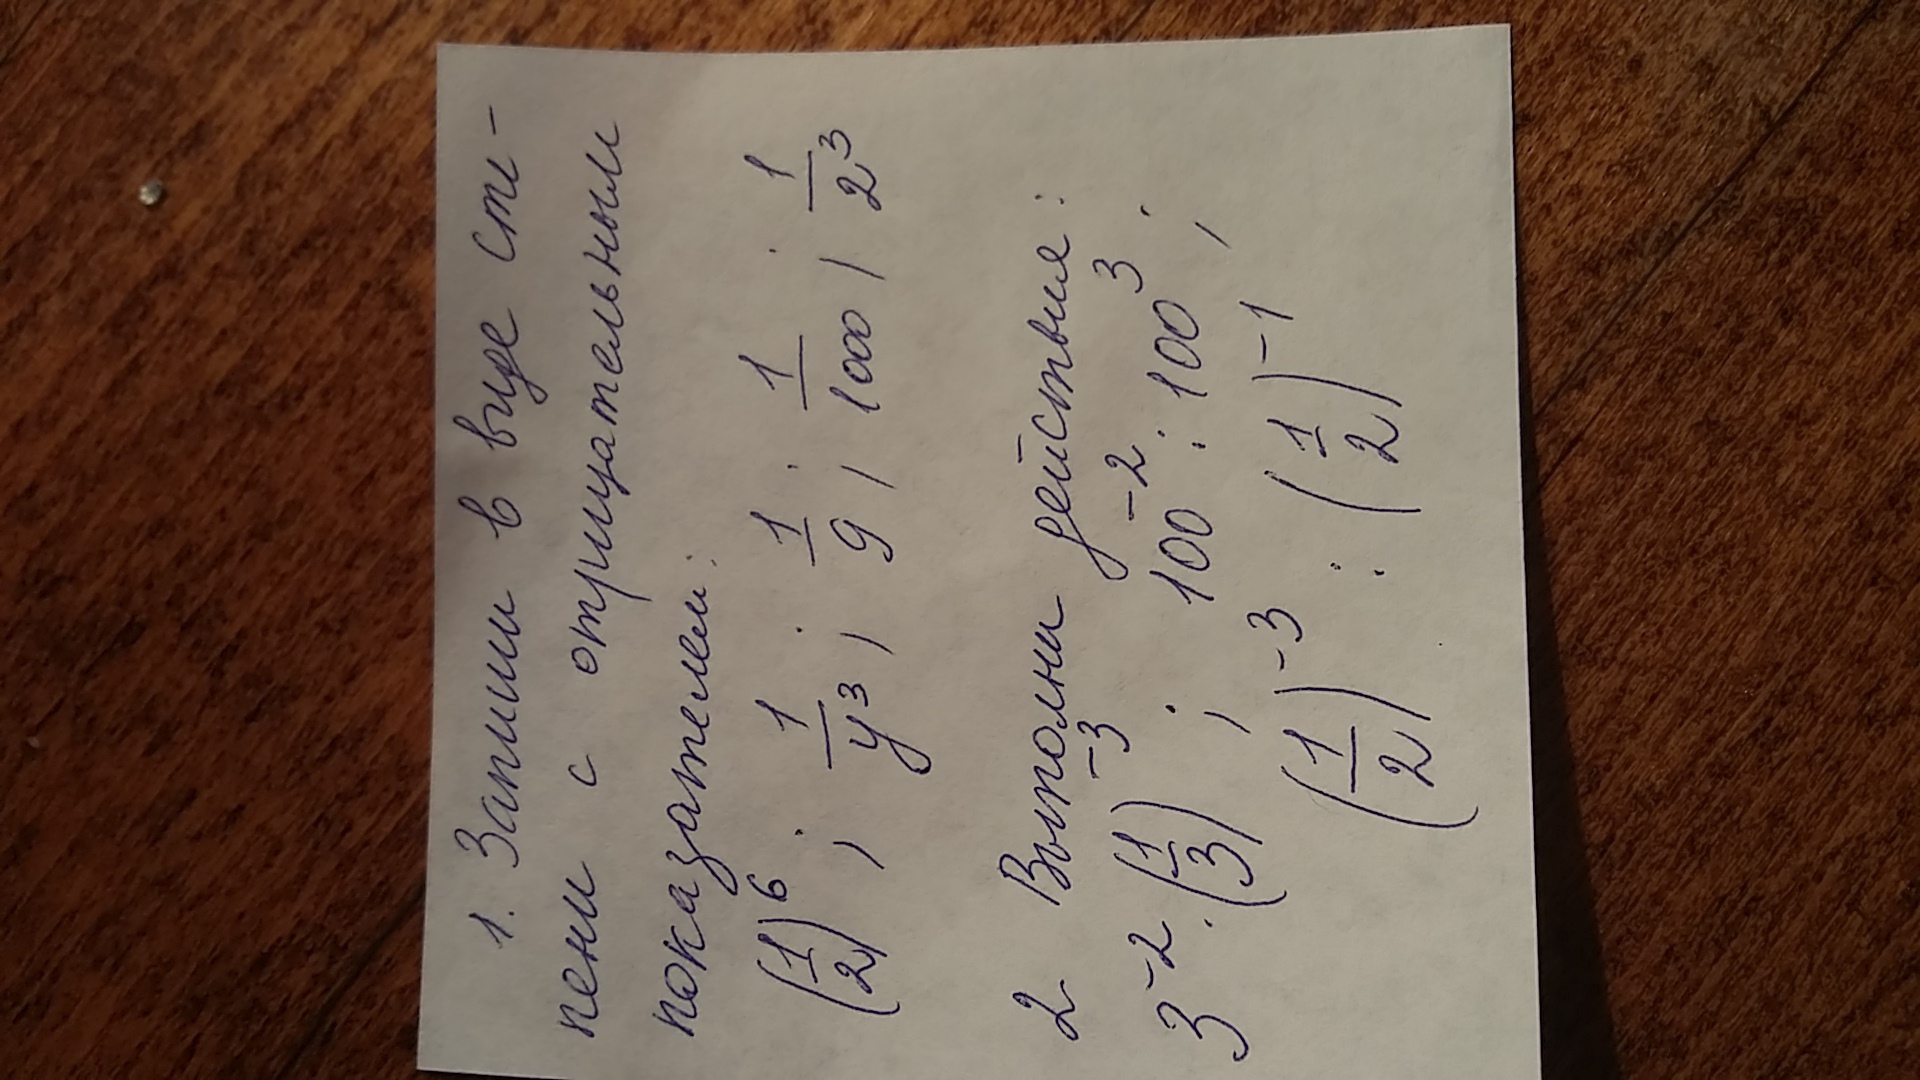 1. Запиши в виде сте-
пени с отрицательным
показателем:
(1/2)⁶ ; 1/y³ ; 1/9 ; 1/1000 ; 1/2³
2 Выполни действия:
3⁻² · (1/3)⁻³ ; 100⁻² : 100³ ;
(1/2)⁻³ : (1/2)⁻¹